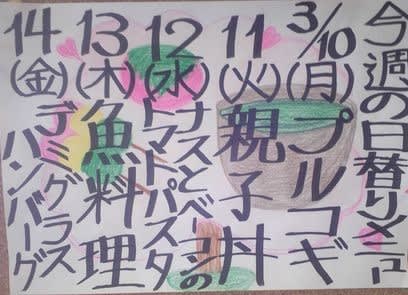 今週の日替りメニュー
3/10(月)プルコギ
11(火)親子丼
12(水)ナスとベーコンの
トマトパスタ
13(木)魚料理
14(金)デミグラス
ハンバーグ